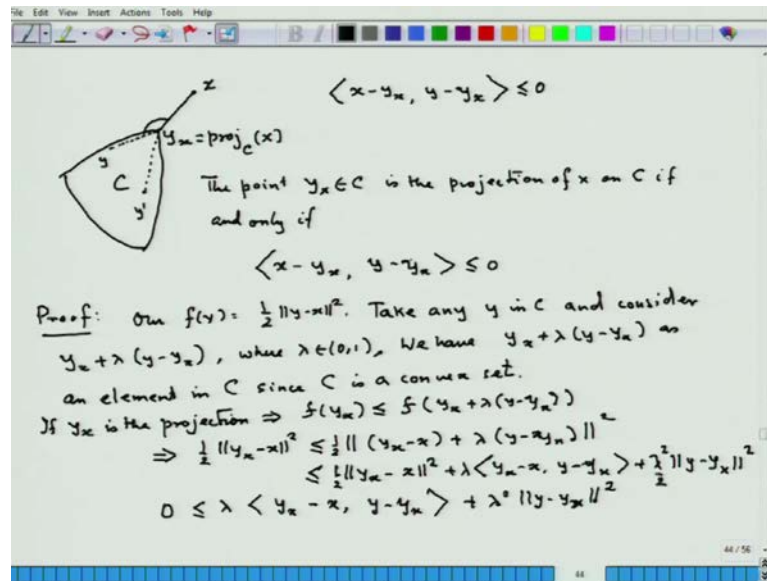 File Edit View Insert Actions Tools Help
B I
x
⟨x-yₓ, y-yₓ⟩ ≤ 0
yₓ = proj_C(x)
y
C
y'
The point yₓ ∈ C is the projection of x on C if
and only if
⟨x-yₓ, y-yₓ⟩ ≤ 0
Proof: Our f(y) = ½ ||y-x||². Take any y in C and consider
yₓ + λ(y-yₓ), where λ ∈ (0,1), We have yₓ + λ(y-yₓ) as
an element in C since C is a convex set.
If yₓ is the projection ⇒ f(yₓ) ≤ f(yₓ + λ(y-yₓ))
⇒ ½ ||yₓ-x||² ≤ ½ || (yₓ-x) + λ(y-yₓ) ||²
≤ ½ ||yₓ - x||² + λ⟨yₓ-x, y-yₓ⟩ + λ²/2 ||y-yₓ||²
0 ≤ λ ⟨yₓ - x, y-yₓ⟩ + λ² ||y-yₓ||²
44 / 56
44